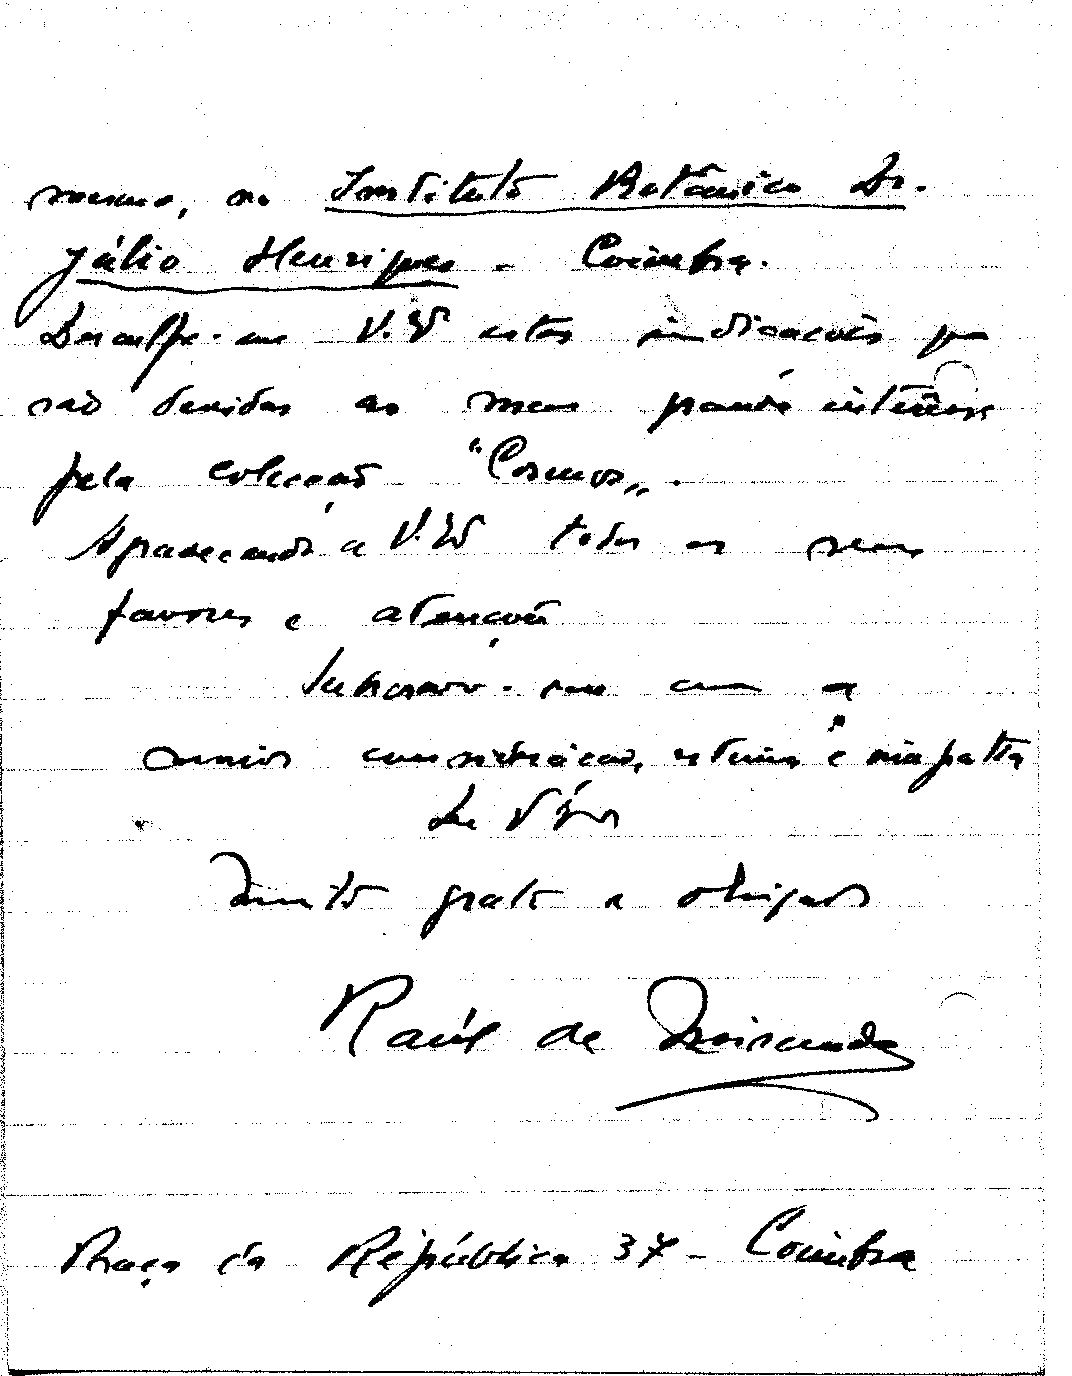 mesmo, no Instituto Botânico Dr.
Júlio Henriques - Coimbra.
Desculpe-me V. Ex. estas indicações que
são devidas ao meu grande interesse
pela colecção "Cosmos„.
Agradecendo a V. Ex. todos os seus
favores e atenções
Subscrevo-me com a
maior consideração, estima e simpatia
De V. Ex.
Muito grato e obrigado
Raúl de Miranda
Praça da República 37 - Coimbra